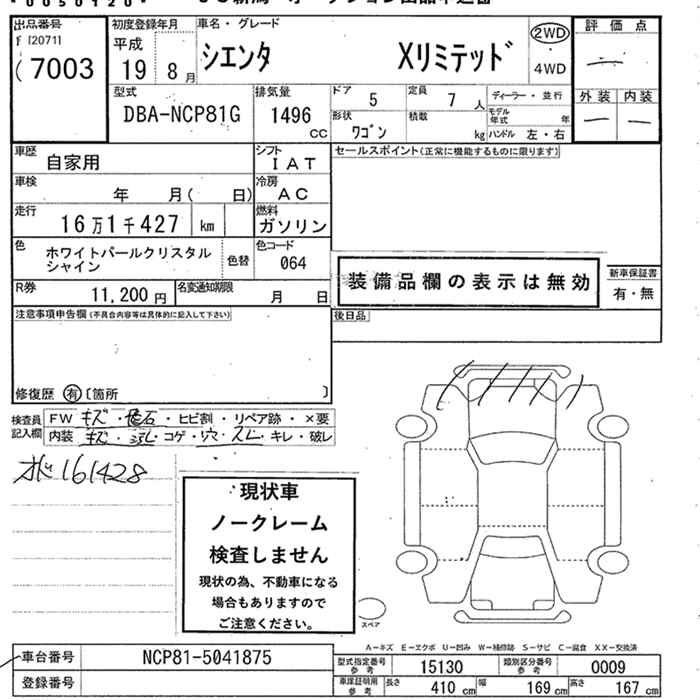 *0050120*
出品番号
[20711
7003
初度登録年月
平成
19年8月
車名・グレード
シエンタ Xリミテッド
2WD
4WD
評価点
外装 内装
型式
DBA-NCP81G
排気量
1496 CC
ドア 5
定員 7人
ディーラー・並行
形状 ワゴン
積載 kg
モデル年式 年
ハンドル 左・右
車歴 自家用
シフト IAT
車検 年 月( 日)
冷房 AC
走行 16万1千427 km
燃料 ガソリン
色 ホワイトパールクリスタル
シャイン
色替
色コード 064
R券 11,200円
名変通知期限 月 日
セールスポイント(正常に機能するものに限ります)
装備品欄の表示は無効
新車保証書
有・無
注意事項申告欄(不具合内容等は具体的に記入して下さい)
後日品
修復歴 有〔箇所 〕
検査員記入欄
FW キズ・飛石・ヒビ割・リペア跡・×要
内装 キズ・汚レ・コゲ・穴・スレ・キレ・破レ
161428
現状車
ノークレーム
検査しません
現状の為、不動車になる
場合もありますので
ご注意ください。
スペア
A-キズ E-エクボ U-凹み W-補修跡 S-サビ C-腐食 XX-交換済
車台番号 NCP81-5041875
登録番号
型式指定番号 参考 15130
類別区分番号 参考 0009
車庫証明用 参考 長さ 410 cm 幅 169 cm 高さ 167 cm